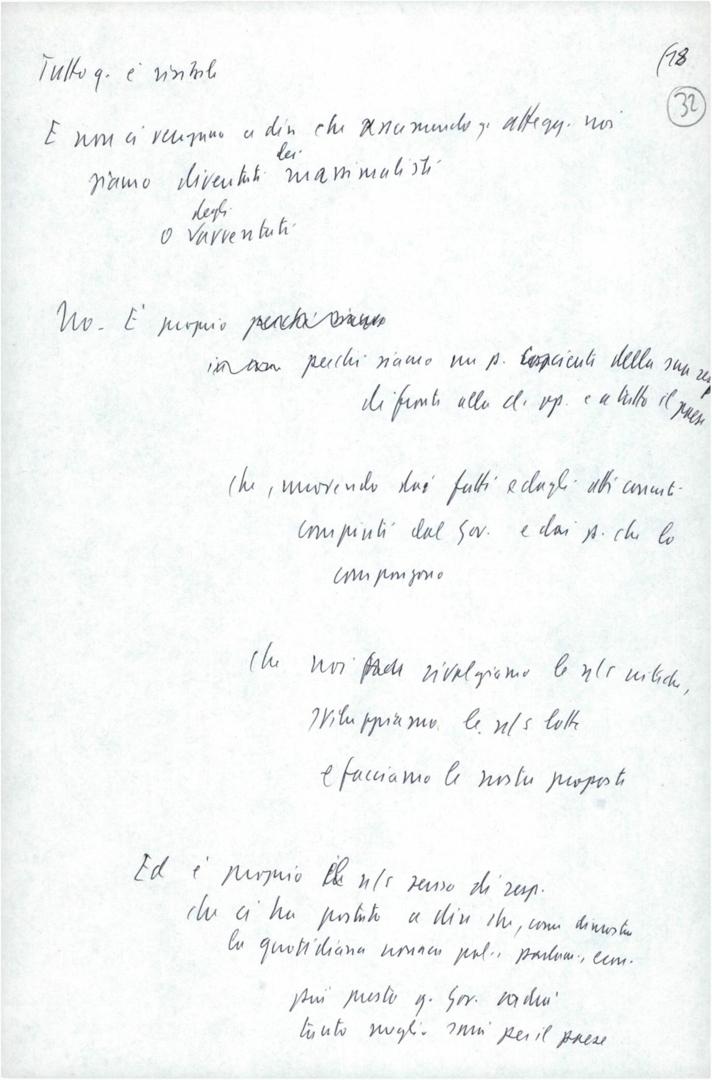 (18
32
Tutto q. è risibile
E non ci vengano a dire che assumendo q. attegg. noi
siamo diventati dei massimalisti
o degli avventuti
No. È proprio perché siamo
perché siamo un p. cosciente della sua resp
di fronte alla cl. op. e a tutto il paese
che, muovendo dai fatti e dagli atti concreti
compiuti dal Gov. e dai p. che lo
compongono
che noi rivolgiamo le n/s critiche,
sviluppiamo le n/s lotte
e facciamo le nostre proposte
Ed è proprio il n/s senso di resp.
che ci ha portato a dire che, come dimostra
la quotidiana cronaca pol., parlam., econ.
più presto q. Gov. cadrà
tanto meglio sarà per il paese